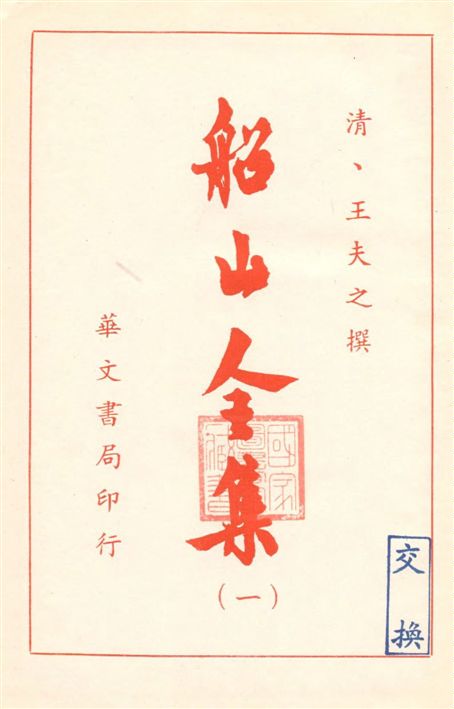 清、王夫之撰
船山全集
（一）
華文書局印行
國家圖書館藏書
交換